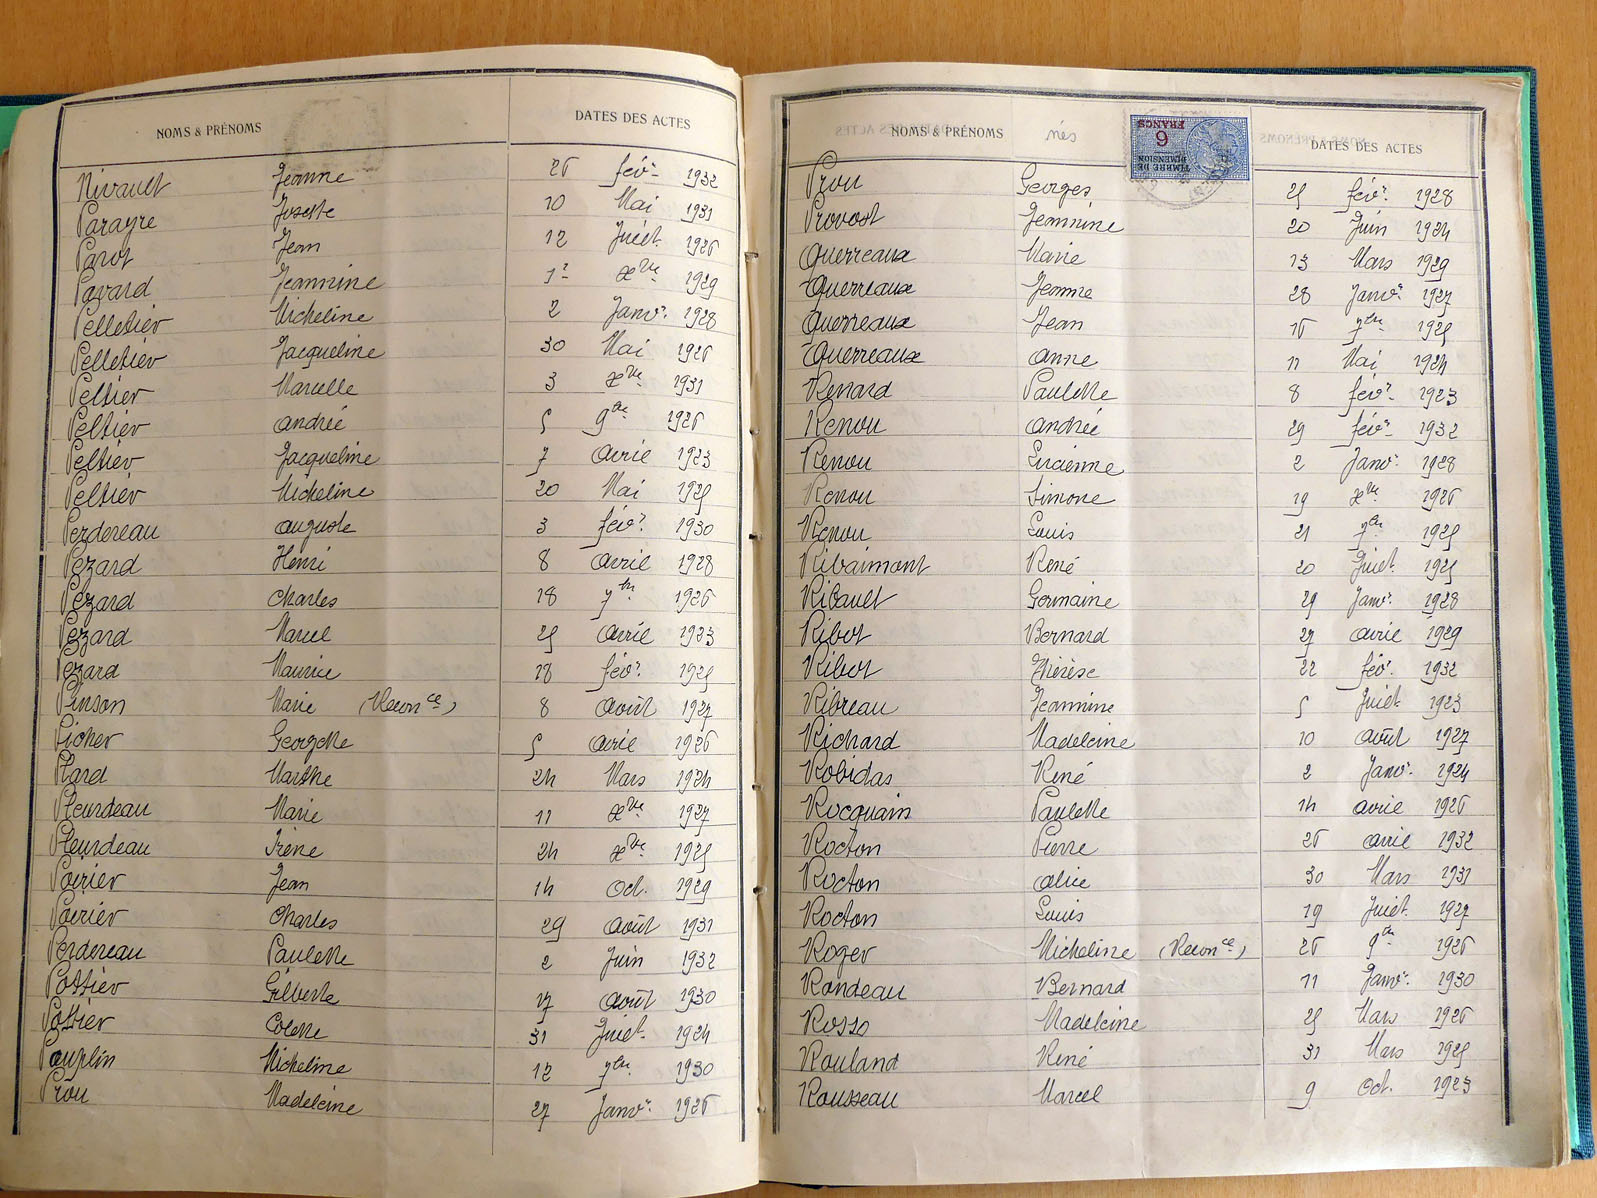 NOMS & PRÉNOMS DATES DES ACTES
Nivault Jeanne 26 févr 1932
Parayre Josette 10 Mai 1931
Parot Jean 12 Juiet 1926
Pavard Jeannine 1er Xbre 1929
Pelletier Micheline 2 Janvr 1928
Pelletier Jacqueline 30 Mai 1926
Peltier Marcelle 3 Xbre 1931
Peltier andrée 5 9bre 1926
Peltier Jacqueline 7 avril 1923
Peltier Micheline 20 Mai 1925
Perdereau auguste 3 févr 1930
Pezard Henri 8 avril 1928
Pezard Charles 18 7bre 1926
Pezard Marcel 25 avril 1923
Pezard Maurice 18 févr 1925
Pinson Marie (Reconce) 8 août 1927
Georgette 5 avril 1926
Plard Marthe 24 Mars 1924
Pleurdeau Marie 11 Xbre 1927
Pleurdeau Irène 24 Xbre 1925
Poirier Jean 14 Oct. 1929
Poirier Charles 29 août 1931
Perdereau Paulette 2 Juin 1932
Pottier Gilberte 17 août 1930
Pottier Colette 31 Juiet 1924
Pouplin Micheline 12 7bre 1930
Prou Madeleine 27 Janvr 1926
NOMS & PRÉNOMS nés DATES DES ACTES
TIMBRE DE DIMENSION
6
FRANCS
Prou Georges 25 févr 1928
Provost Jeannine 20 Juin 1924
Querreaux Marie 13 Mars 1929
Querreaux Jeanne 28 Janvr 1927
Querreaux Jean 16 7bre 1925
Querreaux anne 11 Mai 1924
Renard Paulette 8 févr 1923
Renou andrée 29 févr 1932
Renou Lucienne 2 Janvr 1928
Renou Simone 19 Xbre 1926
Renou Louis 21 9bre 1925
Ribaimont René 20 Juiet 1925
Ribault Germaine 29 Janvr 1928
Ribot Bernard 27 avril 1929
Ribot Thérèse 22 févr 1932
Ribreau Jeannine 5 Juiet 1923
Richard Madeleine 10 août 1927
Robidas René 2 Janvr 1924
Rocquain Paulette 14 avril 1926
Rocton Pierre 26 avril 1932
Rocton alice 30 Mars 1931
Rocton Louis 19 Juiet 1927
Roger Micheline (Reconce) 26 9bre 1926
Rondeau Bernard 11 Janvr 1930
Rosso Madeleine 25 Mars 1926
Rouland René 31 Mars 1925
Rousseau Marcel 9 Oct. 1923